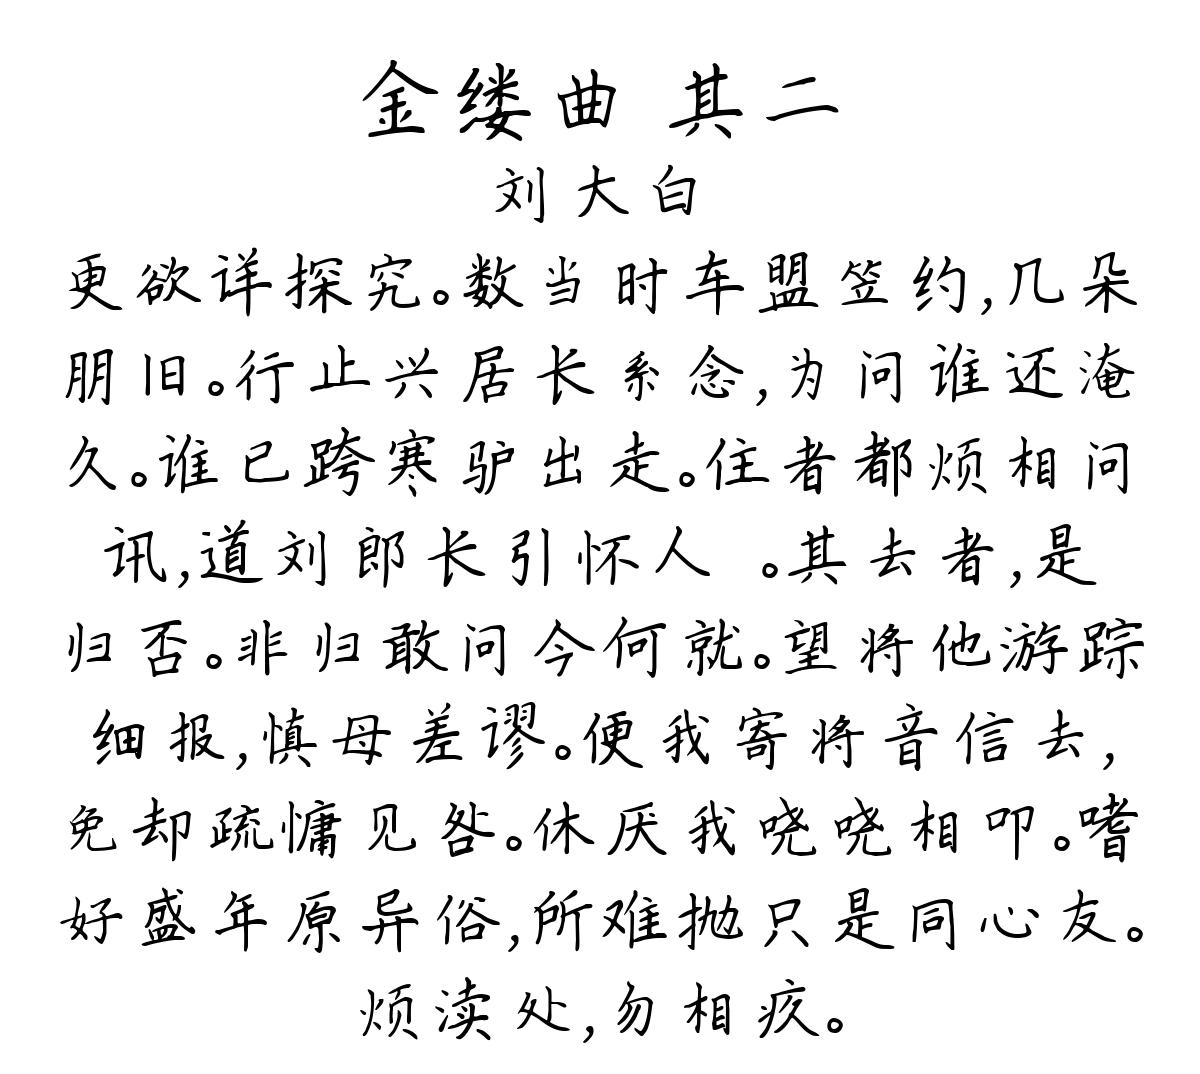 金缕曲 其二
刘大白
更欲详探究。数当时车盟笠约,几朵
朋旧。行止兴居长系念,为问谁还淹
久。谁已跨寒驴出走。住者都烦相问
讯,道刘郎长引怀人 。其去者,是
归否。非归敢问今何就。望将他游踪
细报,慎毋差谬。便我寄将音信去,
免却疏慵见咎。休厌我哓哓相叩。嗜
好盛年原异俗,所难抛只是同心友。
烦渎处,勿相疚。